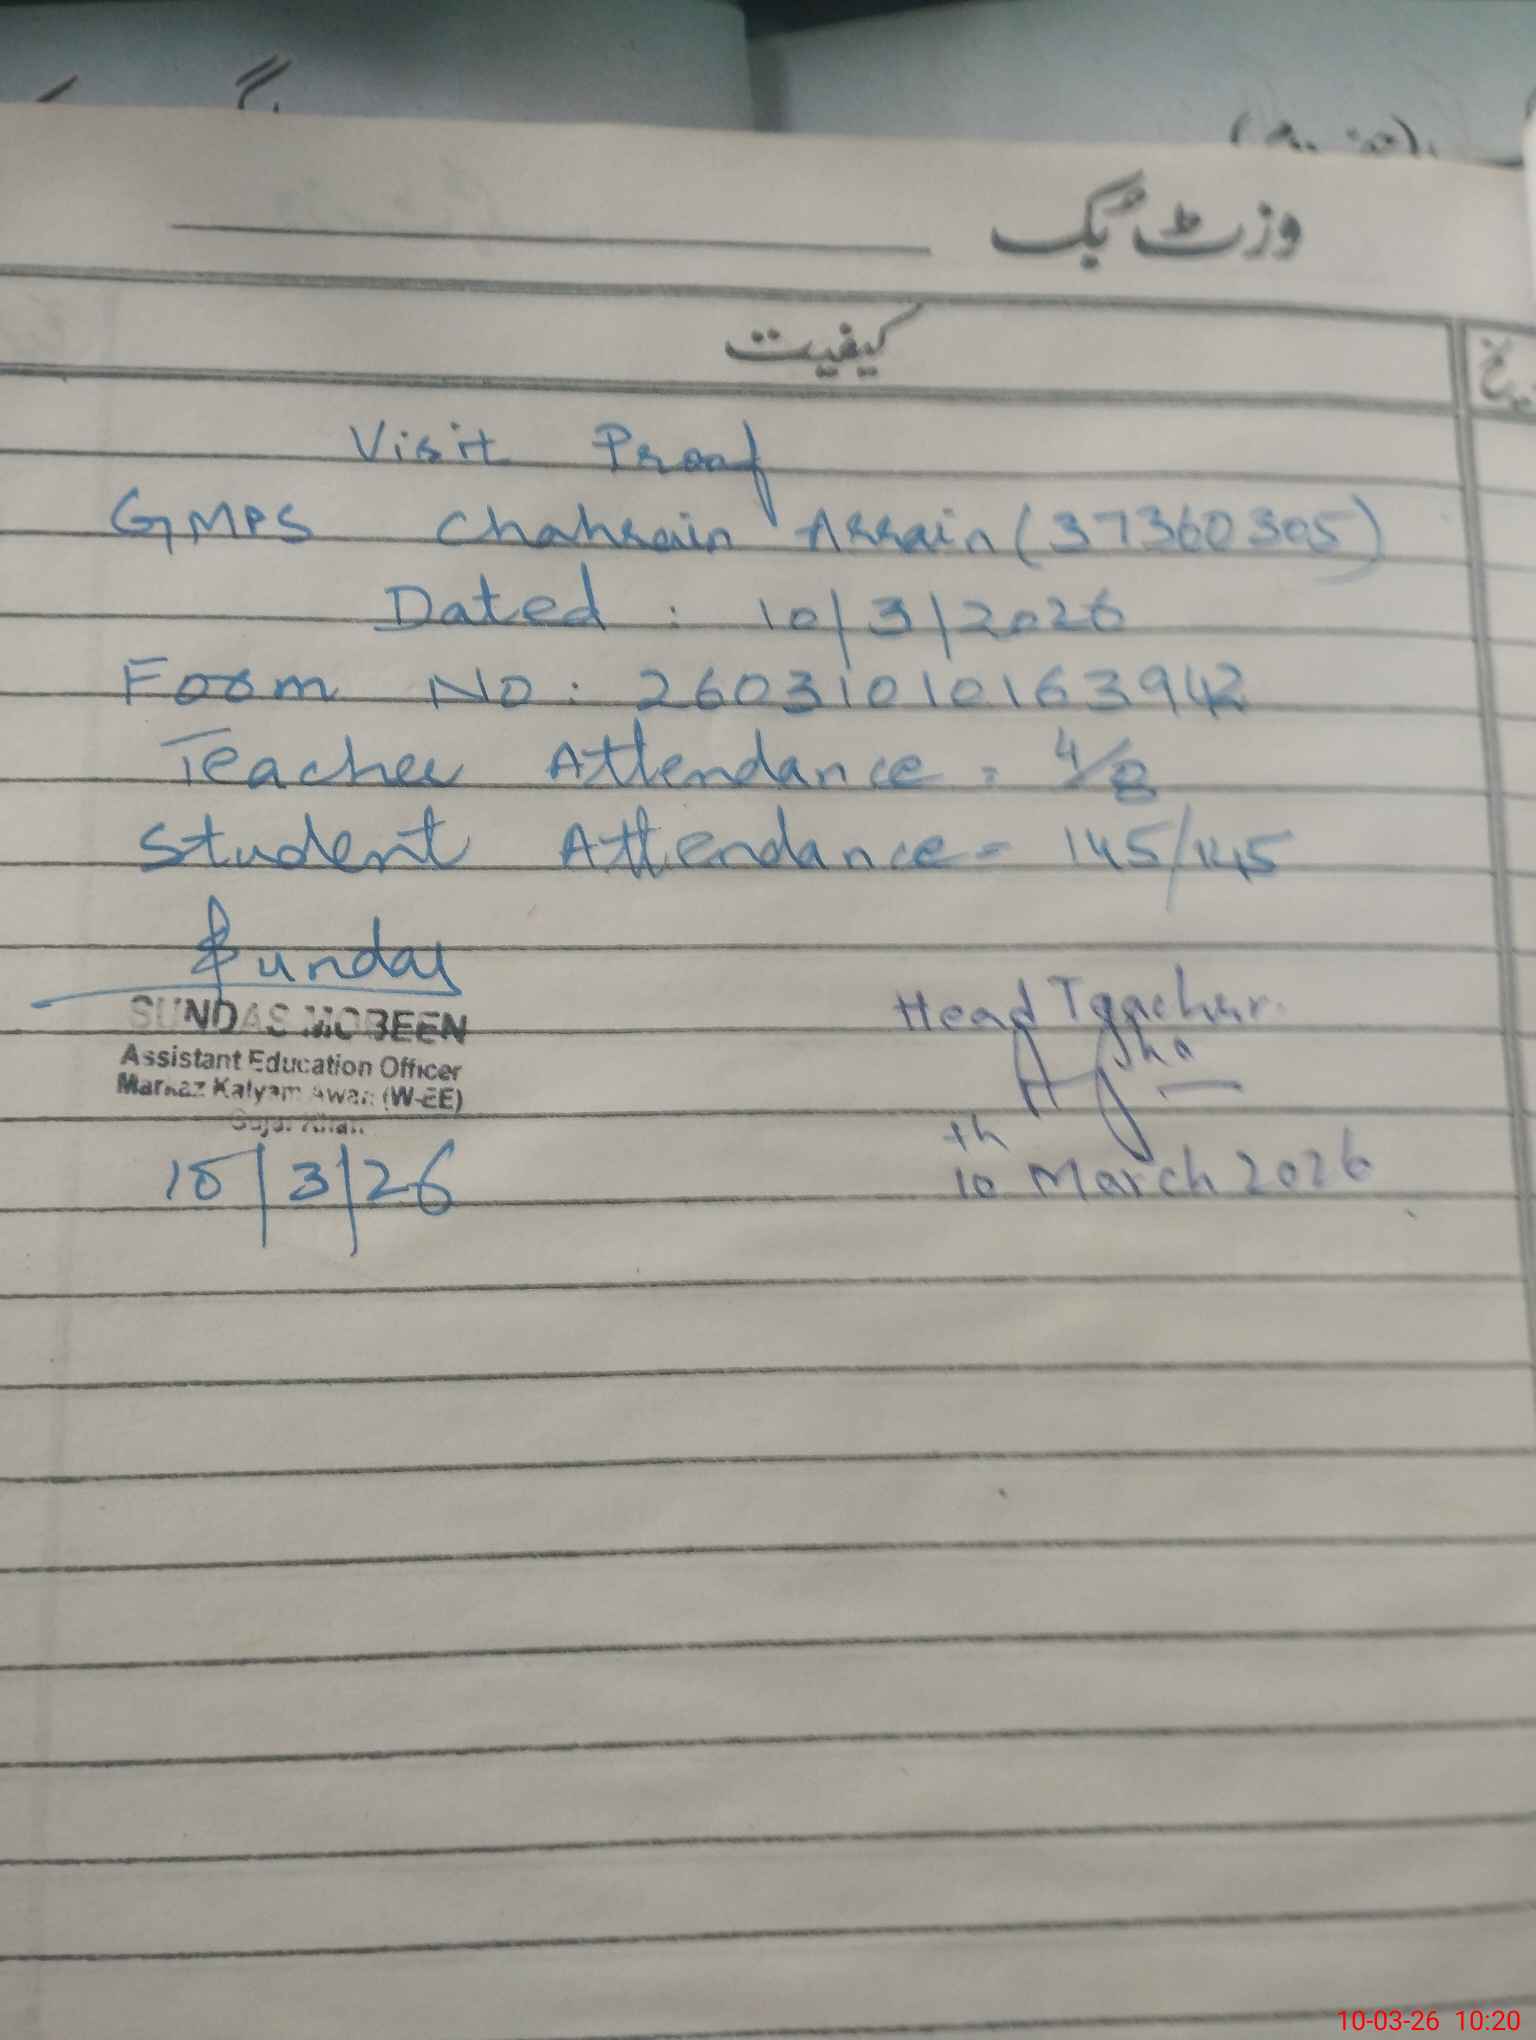 وزٹ بُک
کیفیت
Visit Proof
GMPS Chahrain Arrain (37360305)
Dated : 10/3/2026
Form No : 26031010163942
Teacher Attendance = 4/8
Student Attendance = 145/145
Sundas
SUNDAS MOBEEN
Assistant Education Officer
Markaz Kalyam Awan (W-EE)
Gujar Khan
10/3/26
Head Teacher
10th March 2026
10-03-26 10:20